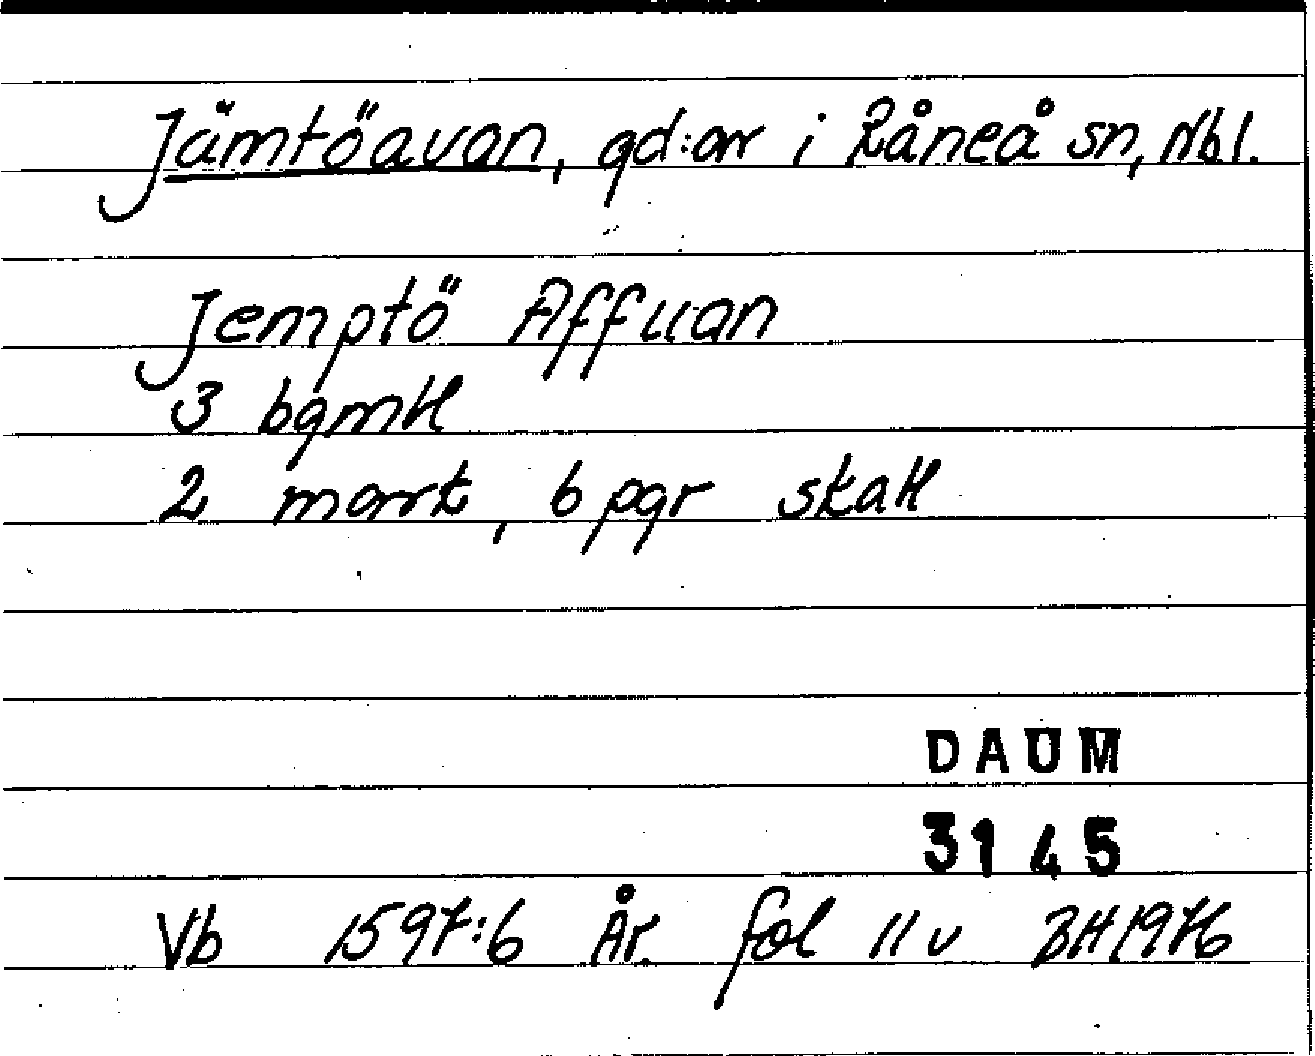 Jämtöavan, gd:ar i Råneå sn, Nbl.
Jemptö Affuan
3 bgmtl
2 mark, 6 pgr skatt
DAUM
3145
Vb 1597:6 År. fol 11v BH 1976